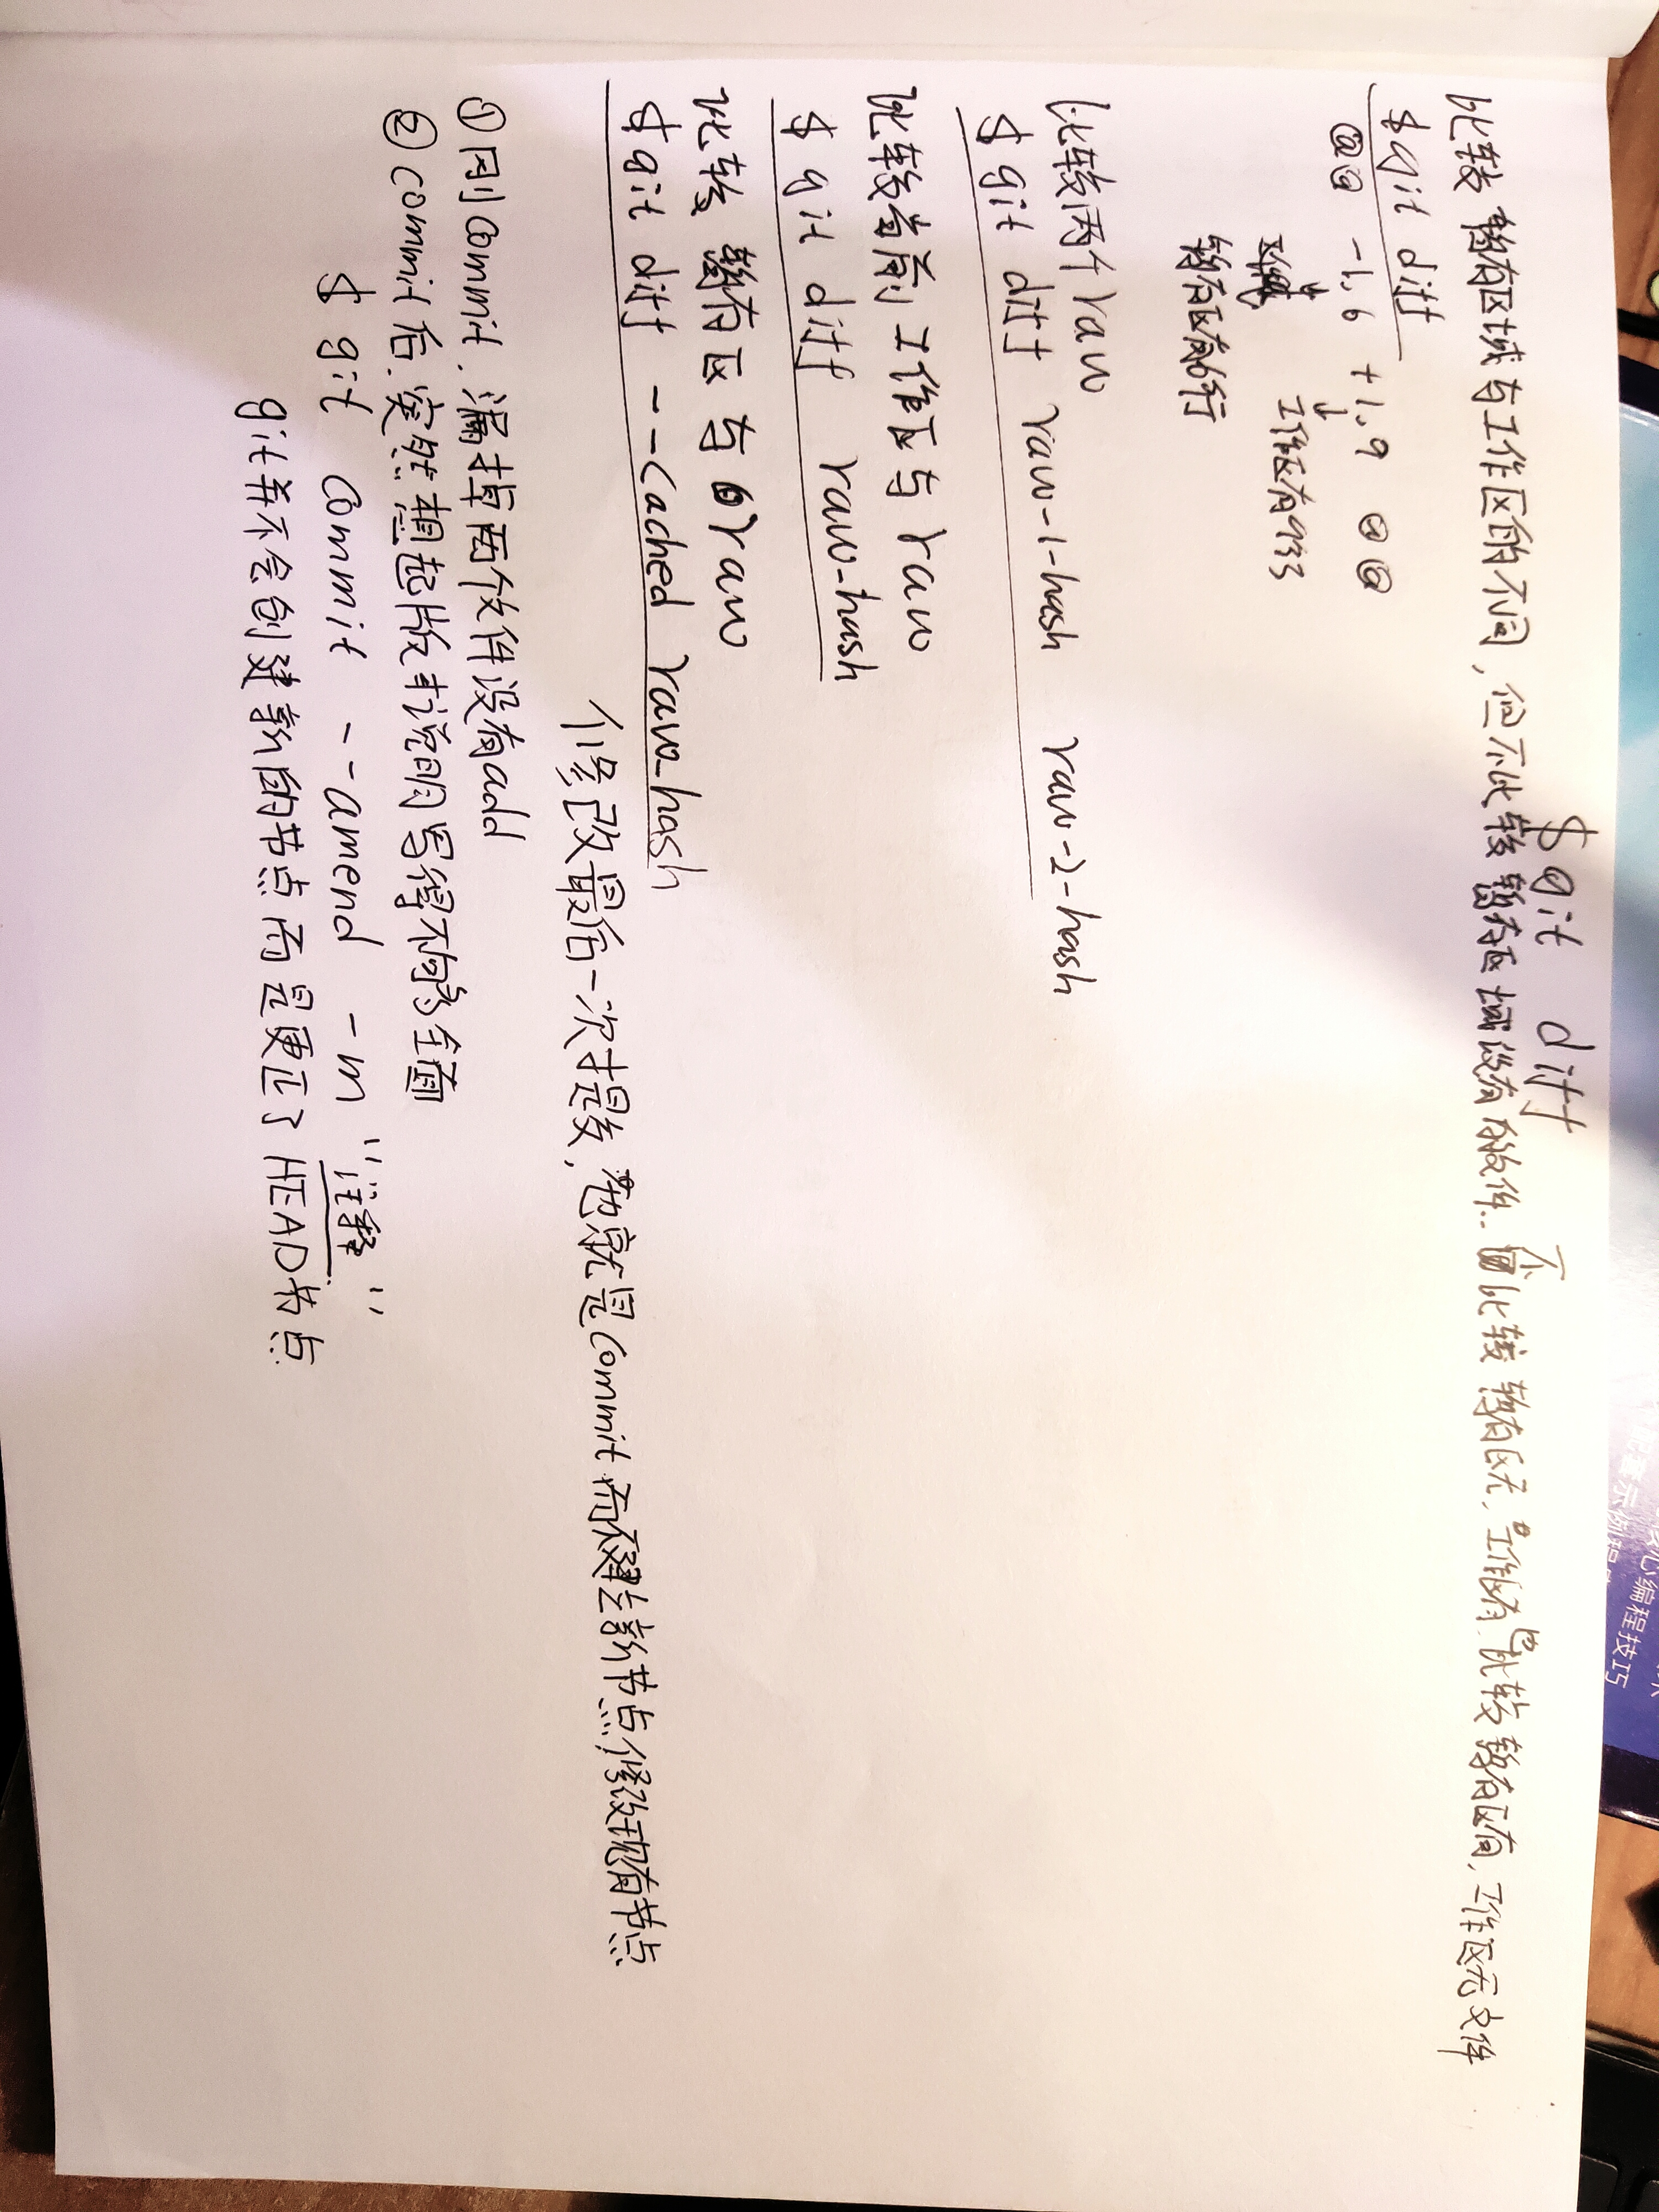 核心编程技巧
配套示例程
$ git diff
比较暂存区域与工作区的不同,但不比较暂存区域没有的文件.. 不比较暂存区无,工作区有,也比较暂存区有,工作区无文件
$ git diff
@@ -1,6 +1,9 @@
工作区有9行
暂存区有6行
比较两个raw
$ git diff raw-1-hash raw-2-hash
比较当前工作区与raw
$ git diff raw-hash
比较暂存区与raw
$ git diff --cached raw_hash
修改最后一次提交,也就是commit而不建立新节点,修改现有节点
①刚commit.漏掉两个文件没有add
②commit后.突然想起版本说明写得不够全面
$ git commit --amend -m "注释."
git并不会创建新的节点而是更正了HEAD节点